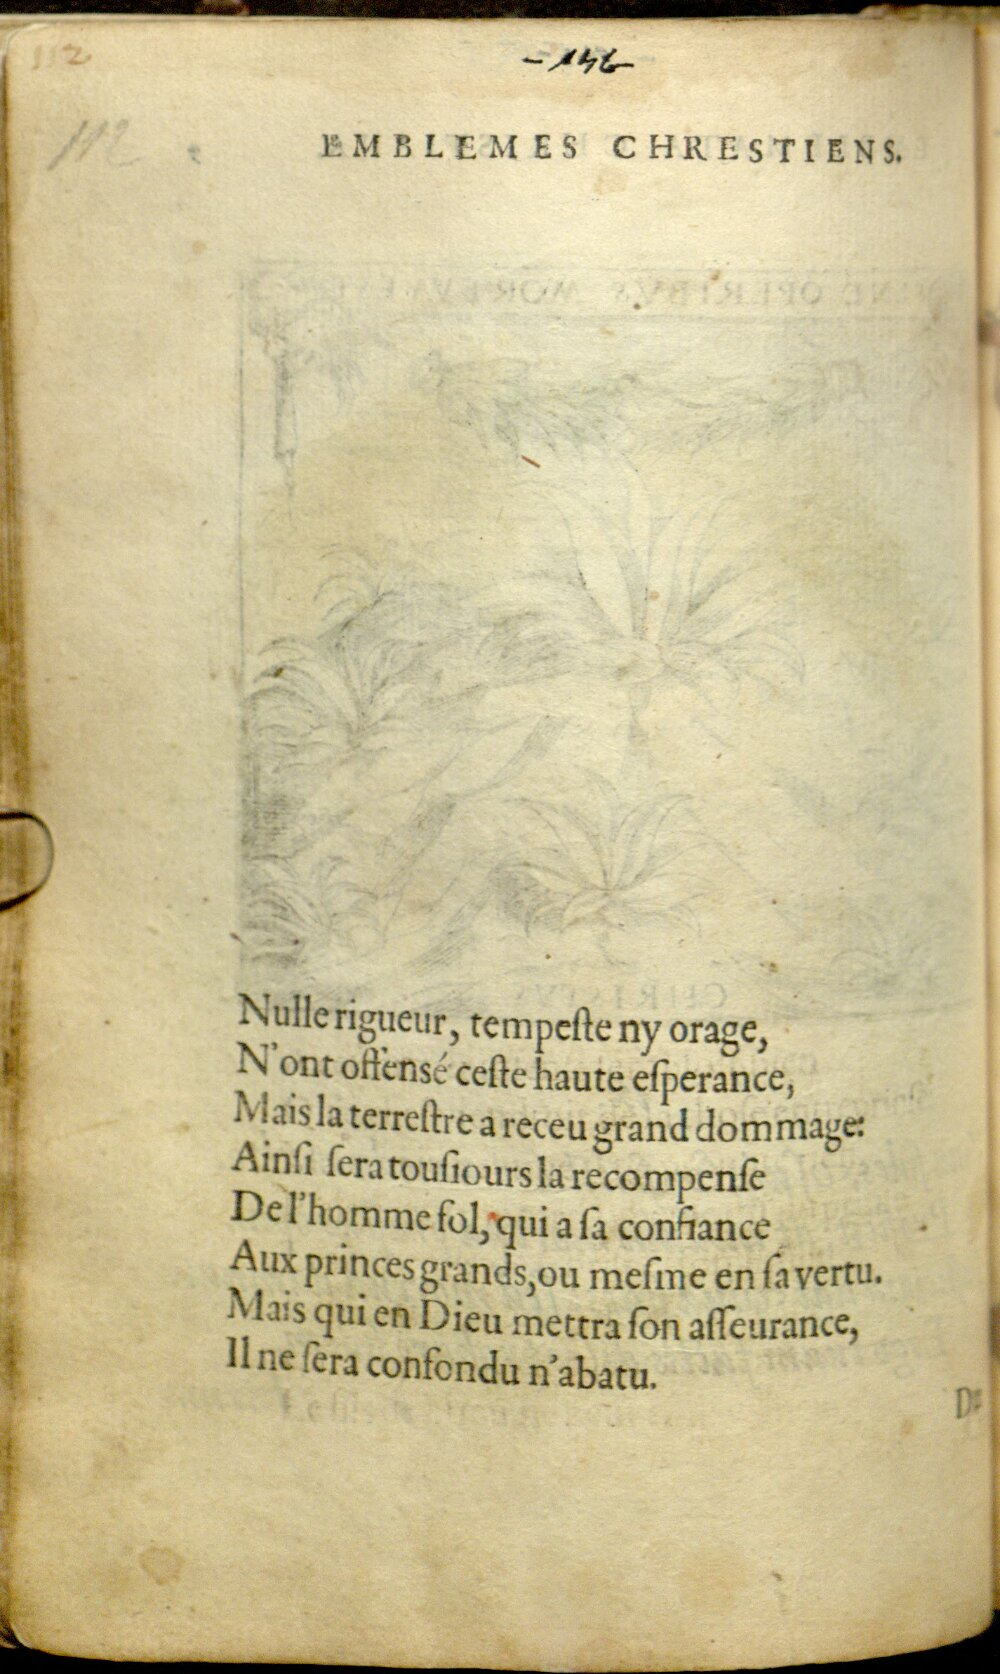 112
112
EMBLEMES CHRESTIENS.
Nulle rigueur, tempeſte ny orage,
N'ont offensé ceſte haute eſperance,
Mais la terreſtre a receu grand dommage:
Ainſi ſera touſiours la recompenſe
De l'homme fol, qui a ſa confiance
Aux princes grands, ou meſme en ſa vertu.
Mais qui en Dieu mettra ſon aſſeurance,
Il ne ſera confondu n'abatu.